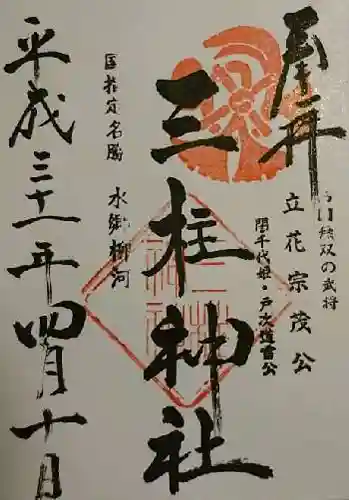 奉拝
無双の武将
立花宗茂公
誾千代姫・戸次道雪公
三柱神社
国指定名勝
水郷柳河
平成三十一年四月十日